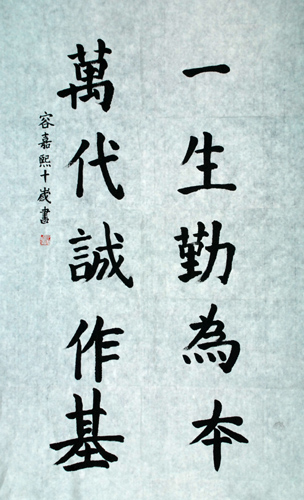 一生勤為本
萬代誠作基
容嘉熙十歲書